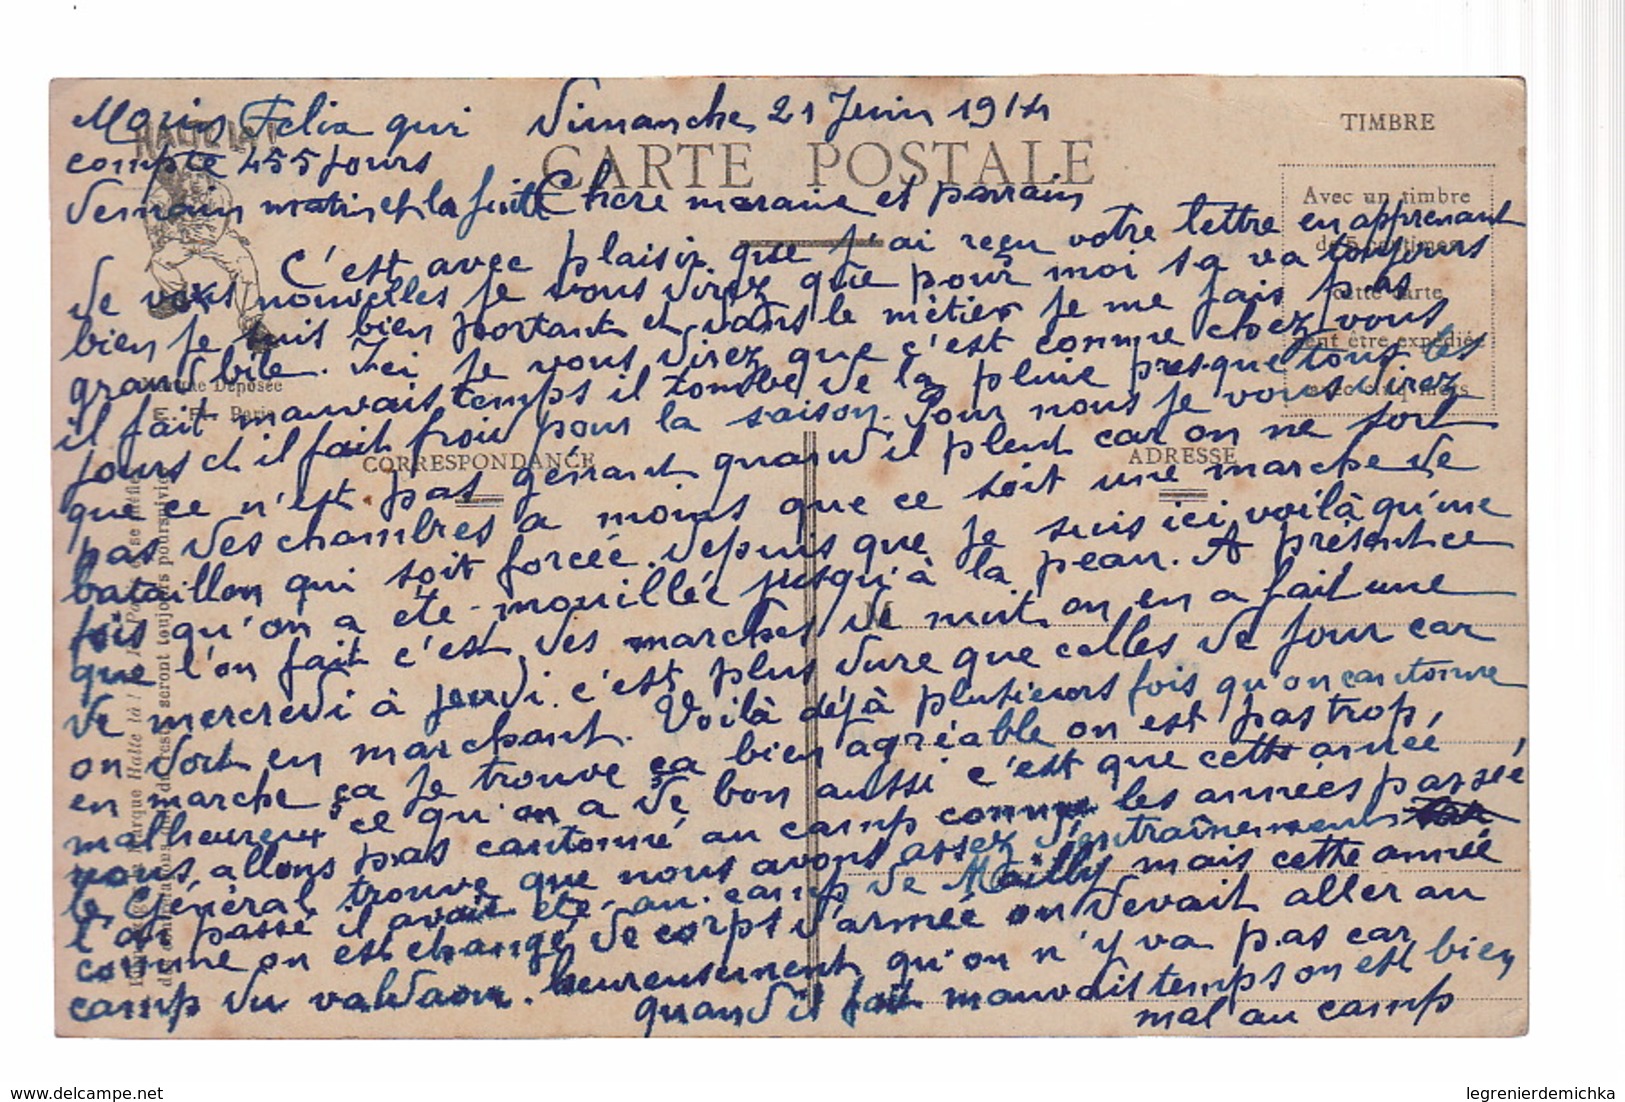 Felix qui
compte 455 jours
demain matin et la fuite
Dimanche 21 Juin 1914
HALTE LÀ !
TIMBRE
CARTE POSTALE
Avec un timbre
de 5 centimes
cette carte
peut être expédiée
avec cinq mots
Chère maraine et parrain
C'est avec plaisir que j'ai reçu votre lettre en apprenant
de vos nouvelles je vous direz que pour moi sa va toujours
bien je suis bien portant et dans le métier je me fais pas
grand bile. Ici je vous direz que c'est comme chez vous
il fait mauvais temps il tombe de la pluie presque tous les
jours et il fait froid pour la saison. Pour nous je vous direz
que ce n'est pas gênant quand il pleut car on ne sort
pas des chambres a moins que ce soit une marche de
bataillon qui soit forcée. depuis que je suis ici voilà qu'une
fois qu'on a été mouillée jusqu'à la peau. A présent ce
que l'on fait c'est des marches de nuit on en a fait une
de mercredi à jeudi. c'est plus dure que celles de jour car
on dort en marchant. Voilà déjà plusieurs fois qu'on cantonne
en marche ça je trouve ça bien agréable on est pas trop
malheureux ce qu'on a de bon aussi c'est que cette année
nous allons pas cantonné au camp comme les années passée
le Général trouve que nous avons assez d'entraînement
l'an passé il avait été au camp de Mailly mais cette année
comme on est changé de corps d'armée on devait aller au
camp du valdaon. heureusement qu'on n'y va pas car
quand il fait mauvais temps on est bien
mal au camp
Marque Déposée
Paris
CORRESPONDANCE
ADRESSE
legrenierdemichka
www.delcampe.net